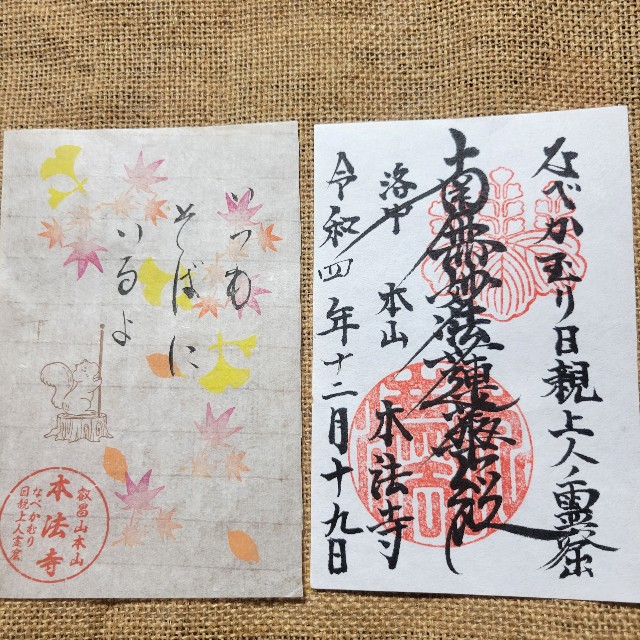 いつも
そばに
いるよ
叡昌山本山
本法寺
なべかむり
日親上人霊窟
なべかむり日親上人ノ霊窟
南無妙法蓮華経
洛中 本山 本法寺
令和四年十二月十九日